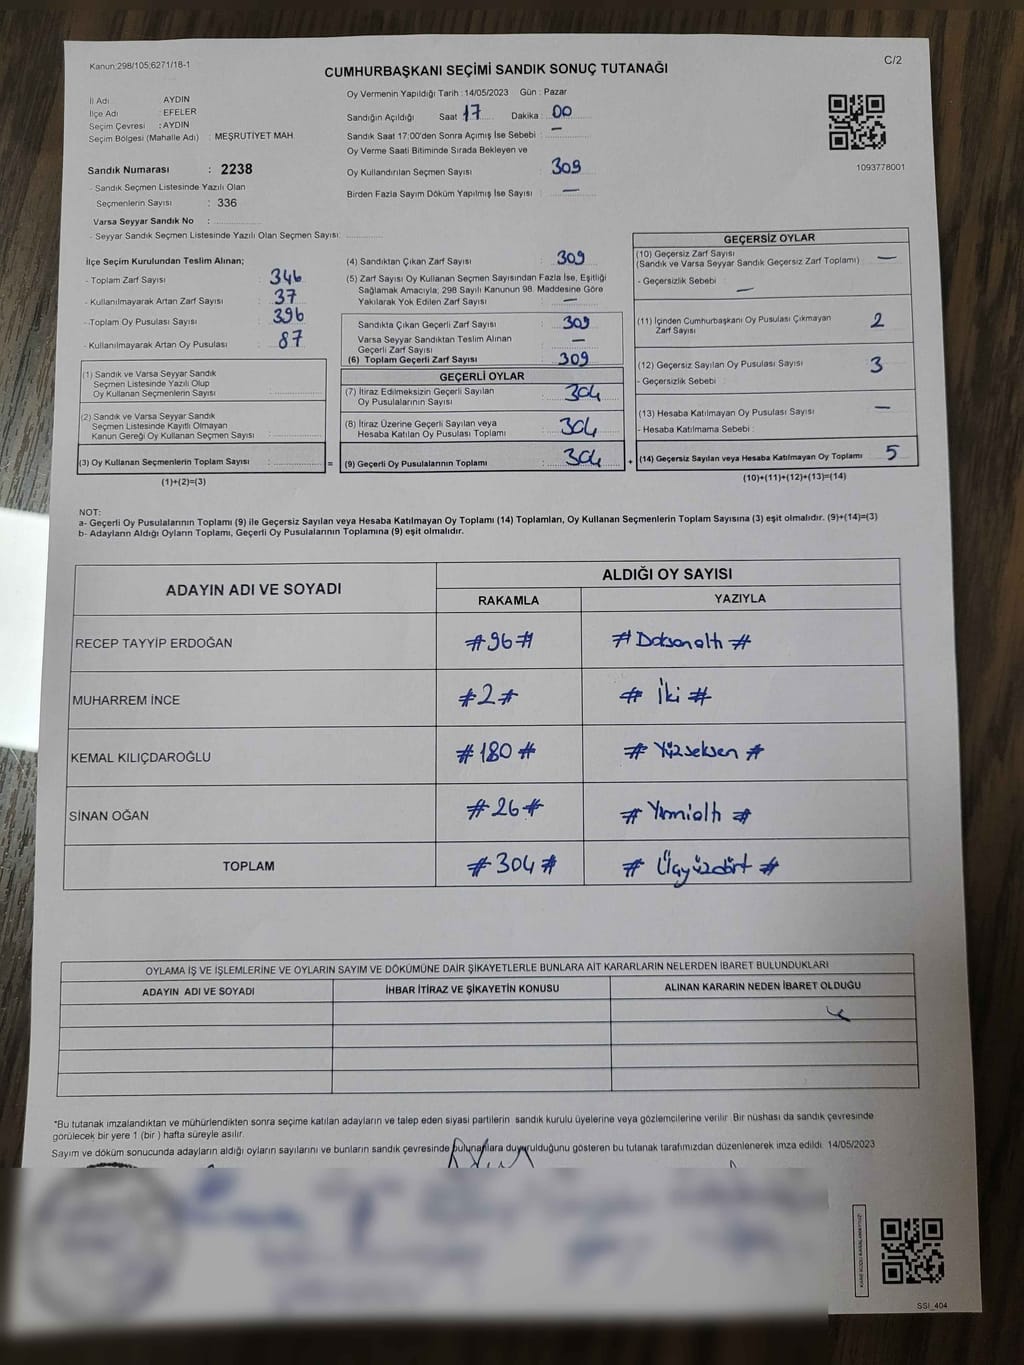 Kanun:298/105;6271/18-1
C/2
CUMHURBAŞKANI SEÇİMİ SANDIK SONUÇ TUTANAĞI
İl Adı AYDIN
İlçe Adı : EFELER
Seçim Çevresi : AYDIN
Seçim Bölgesi (Mahalle Adı) : MEŞRUTİYET MAH.
Sandık Numarası : 2238
- Sandık Seçmen Listesinde Yazılı Olan
Seçmenlerin Sayısı : 336
Varsa Seyyar Sandık No :
- Seyyar Sandık Seçmen Listesinde Yazılı Olan Seçmen Sayısı:
Oy Vermenin Yapıldığı Tarih : 14/05/2023 Gün : Pazar
Sandığın Açıldığı Saat 17 Dakika : 00
Sandık Saat 17:00'den Sonra Açımış İse Sebebi : —
Oy Verme Saati Bitiminde Sırada Bekleyen ve
Oy Kullandırılan Seçmen Sayısı : 309
Birden Fazla Sayım Döküm Yapılmış İse Sayısı : —
1093778001
İlçe Seçim Kurulundan Teslim Alınan;
- Toplam Zarf Sayısı : 346
- Kullanılmayarak Artan Zarf Sayısı : 37
- Toplam Oy Pusulası Sayısı : 396
- Kullanılmayarak Artan Oy Pusulası : 87
(1) Sandık ve Varsa Seyyar Sandık
Seçmen Listesinde Yazılı Olup
Oy Kullanan Seçmenlerin Sayısı :
(2) Sandık ve Varsa Seyyar Sandık
Seçmen Listesinde Kayıtlı Olmayan
Kanun Gereği Oy Kullanan Seçmen Sayısı :
(3) Oy Kullanan Seçmenlerin Toplam Sayısı : =
(1)+(2)=(3)
(4) Sandıktan Çıkan Zarf Sayısı : 309
(5) Zarf Sayısı Oy Kullanan Seçmen Sayısından Fazla İse, Eşitliği
Sağlamak Amacıyla; 298 Sayılı Kanunun 98. Maddesine Göre
Yakılarak Yok Edilen Zarf Sayısı : —
Sandıkta Çıkan Geçerli Zarf Sayısı : 309
Varsa Seyyar Sandıktan Teslim Alınan
Geçerli Zarf Sayısı : —
(6) Toplam Geçerli Zarf Sayısı : 309
GEÇERLİ OYLAR
(7) İtiraz Edilmeksizin Geçerli Sayılan
Oy Pusulalarının Sayısı : 304
(8) İtiraz Üzerine Geçerli Sayılan veya
Hesaba Katılan Oy Pusulası Toplamı : 304
(9) Geçerli Oy Pusulalarının Toplamı : 304 +
GEÇERSİZ OYLAR
(10) Geçersiz Zarf Sayısı : —
(Sandık ve Varsa Seyyar Sandık Geçersiz Zarf Toplamı)
- Geçersizlik Sebebi : —
(11) İçinden Cumhurbaşkanı Oy Pusulası Çıkmayan
Zarf Sayısı : 2
(12) Geçersiz Sayılan Oy Pusulası Sayısı : 3
- Geçersizlik Sebebi :
(13) Hesaba Katılmayan Oy Pusulası Sayısı : —
- Hesaba Katılmama Sebebi :
(14) Geçersiz Sayılan veya Hesaba Katılmayan Oy Toplamı : 5
(10)+(11)+(12)+(13)=(14)
NOT:
a- Geçerli Oy Pusulalarının Toplamı (9) ile Geçersiz Sayılan veya Hesaba Katılmayan Oy Toplamı (14) Toplamları, Oy Kullanan Seçmenlerin Toplam Sayısına (3) eşit olmalıdır. (9)+(14)=(3)
b- Adayların Aldığı Oyların Toplamı, Geçerli Oy Pusulalarının Toplamına (9) eşit olmalıdır.
ADAYIN ADI VE SOYADI ALDIĞI OY SAYISI
RAKAMLA YAZIYLA
RECEP TAYYİP ERDOĞAN #96# #Doksanaltı#
MUHARREM İNCE #2# #İki#
KEMAL KILIÇDAROĞLU #180# #Yüzseksen#
SİNAN OĞAN #26# #Yirmialtı#
TOPLAM #304# #Üçyüzdört#
OYLAMA İŞ VE İŞLEMLERİNE VE OYLARIN SAYIM VE DÖKÜMÜNE DAİR ŞİKAYETLERLE BUNLARA AİT KARARLARIN NELERDEN İBARET BULUNDUKLARI
ADAYIN ADI VE SOYADI İHBAR İTİRAZ VE ŞİKAYETİN KONUSU ALINAN KARARIN NEDEN İBARET OLDUĞU
*Bu tutanak imzalandıktan ve mühürlendikten sonra seçime katılan adayların ve talep eden siyasi partilerin sandık kurulu üyelerine veya gözlemcilerine verilir. Bir nüshası da sandık çevresinde
görülecek bir yere 1 (bir) hafta süreyle asılır.
Sayım ve döküm sonucunda adayların aldığı oyların sayılarını ve bunların sandık çevresinde bulunanlara duyurulduğunu gösteren bu tutanak tarafımızdan düzenlenerek imza edildi. 14/05/2023
SSI_404